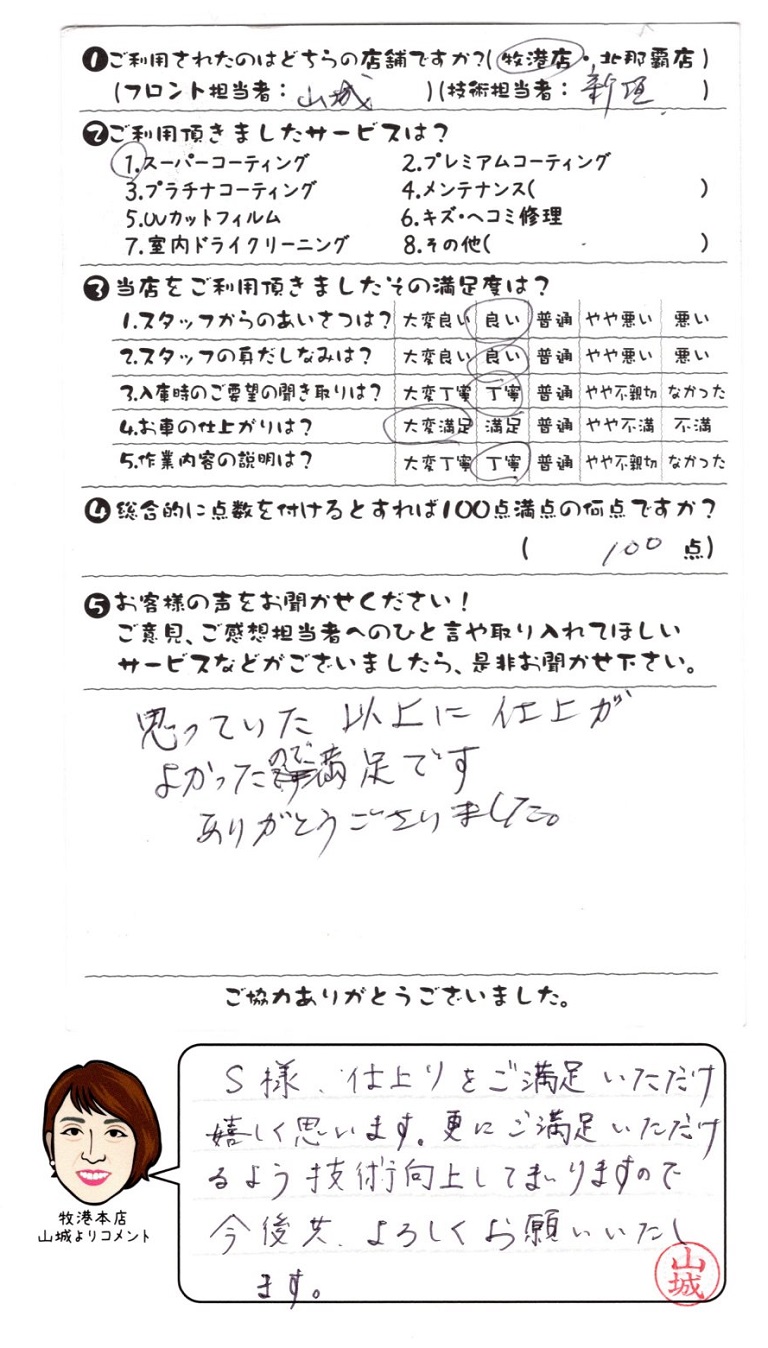 ❶ご利用されたのはどちらの店舗ですか?(牧港店・北那覇店)
(フロント担当者: 山城 )(技術担当者: 新垣 )
❷ご利用頂きましたサービスは?
1.スーパーコーティング 2.プレミアムコーティング
3.プラチナコーティング 4.メンテナンス( )
5.UVカットフィルム 6.キズ・ヘコミ修理
7.室内ドライクリーニング 8.その他( )
❸当店をご利用頂きましたその満足度は?
1.スタッフからのあいさつは? 大変良い 良い 普通 やや悪い 悪い
2.スタッフの身だしなみは? 大変良い 良い 普通 やや悪い 悪い
3.入庫時のご要望の聞き取りは? 大変丁寧 丁寧 普通 やや不親切 なかった
4.お車の仕上がりは? 大変満足 満足 普通 やや不満 不満
5.作業内容の説明は? 大変丁寧 丁寧 普通 やや不親切 なかった
❹総合的に点数を付けるとすれば100点満点の何点ですか?
( 100 点)
❺お客様の声をお聞かせください!
ご意見、ご感想担当者へのひと言や取り入れてほしい
サービスなどがございましたら、是非お聞かせ下さい。
思っていた以上に仕上が
よかったので満足です
ありがとうございました。
ご協力ありがとうございました。
S様、仕上りをご満足いただけ
嬉しく思います。更にご満足いただけ
るよう技術向上してまいりますので
今後共、よろしくお願いいたし
ます。
山城
牧港本店
山城よりコメント